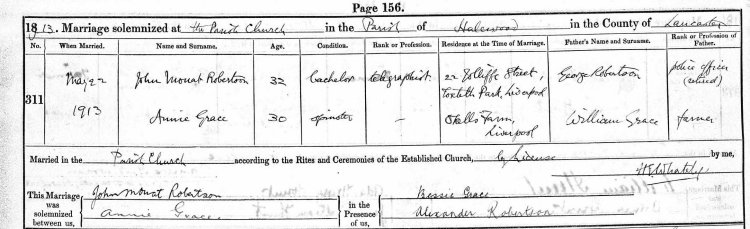 Page 156.
1913. Marriage solemnized at the Parish Church in the Parish of Halewood in the County of Lancaster
No. When Married. Name and Surname. Age. Condition. Rank or Profession. Residence at the Time of Marriage. Father's Name and Surname. Rank or Profession of Father.
311 May 22 1913 John Mount Robertson 32 bachelor telegraphist. 22 Street, Toxteth Park, Liverpool George Robertson police officer (retired)
Annie Grace 30 spinster — Farm, Liverpool William Grace farmer
Married in the Parish Church according to the Rites and Ceremonies of the Established Church, by License by me,
This Marriage was solemnized between us, John Mount Robertson Annie Grace in the Presence of us, Bessie Grace Alexander Robertson